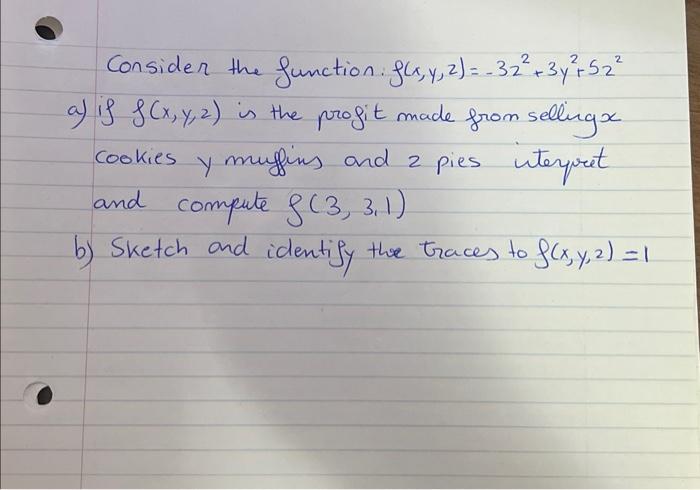 Consider the function: f(x,y,z) = -3z²+3y²+5z²
a) if f(x,y,z) is the profit made from selling x
cookies y muffins and z pies iterpret
and compute f(3, 3,1)
b) Sketch and identify the traces to f(x,y,z) = 1